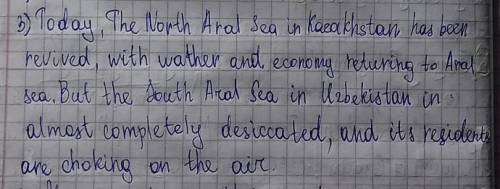 3) Today, The North Aral Sea in Kazakhstan has been
revived, with wather and economy returing to Aral
sea. But the South Aral Sea in Uzbekistan in
almost completely desiccated, and its residents
are choking on the air.